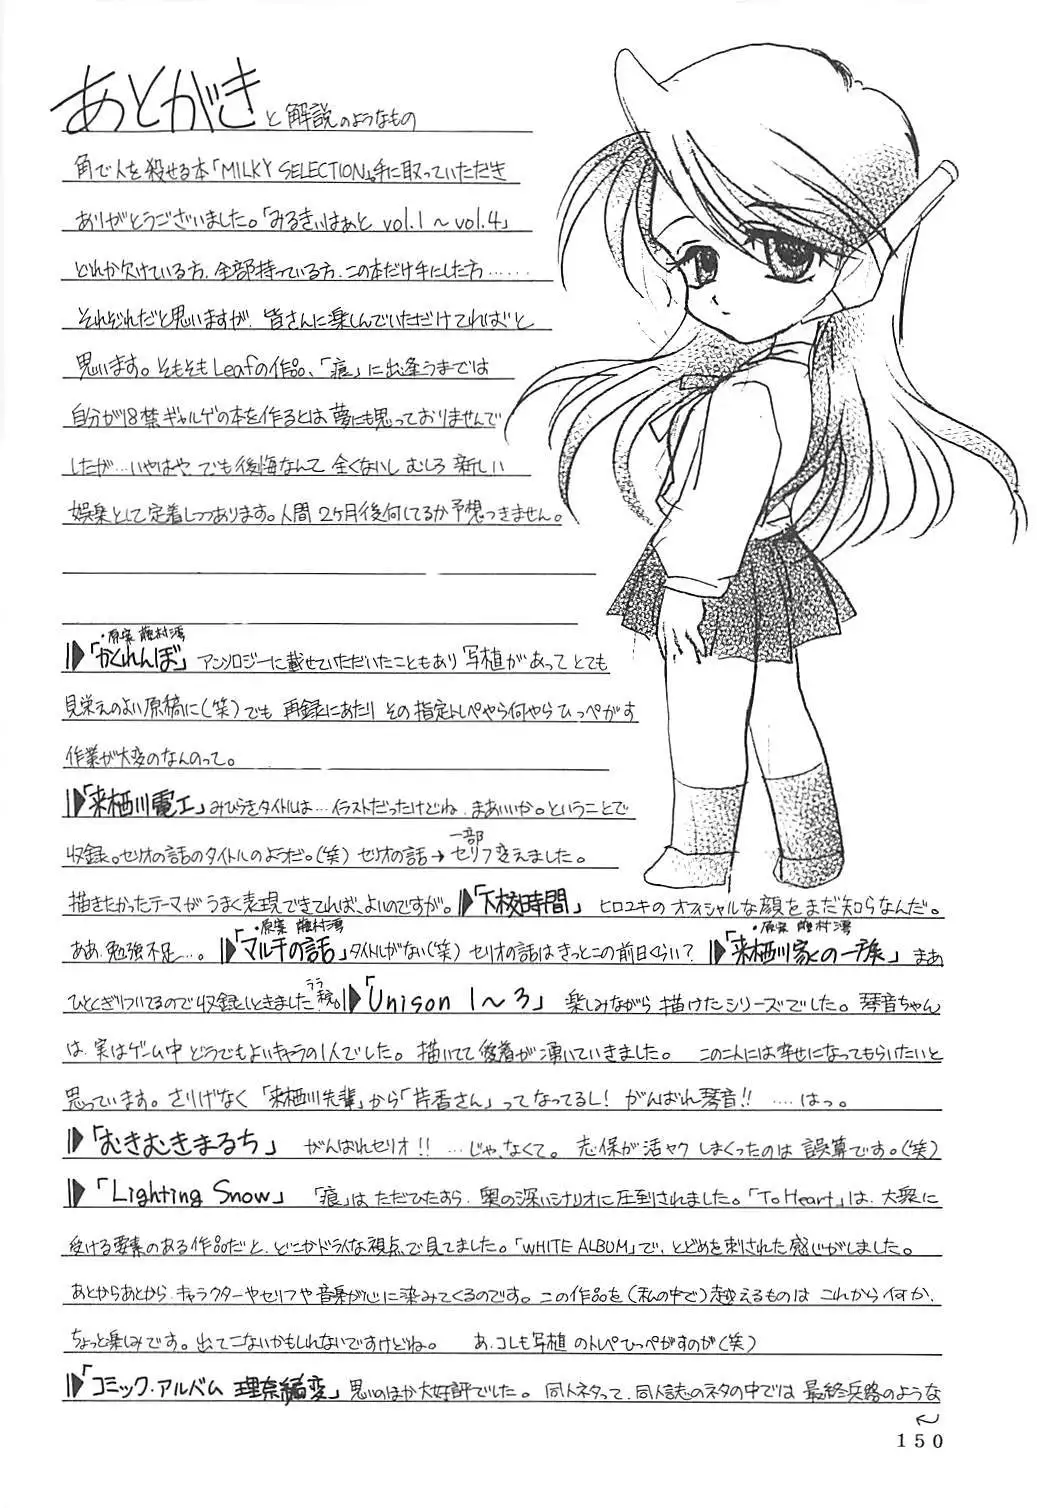 あとがきと解説のようなもの
角で人を殺せる本「MILKY SELECTION」手に取っていただき
ありがとうございました。「みるきぃはぁと vol.1～vol.4」
どれか欠けている方、全部持っている方、この本だけ手にした方……
それぞれだと思いますが、皆さんに楽しんでいただけてればと
思います。そもそもLeafの作品、「痕」に出逢うまでは
自分が18禁ギャルゲの本を作るとは夢にも思っておりませんで
したが…いやはや でも後悔なんて 全くないし むしろ 新しい
娯楽として定着しつつあります。人間 2ヶ月後何してるか予想つきません。
・原案 藤村湾
「かくれんぼ」 アンソロジーに載せていただいたこともあり 写植があって とても
見栄えのよい原稿に(笑)でも 再録にあたり その指定トレペやら何やら ひっぺがす
作業が大変のなんのって。
「来栖川電工」みひらきタイトルは…イラストだったけどね、まあいいか。ということで
収録。セリオの話のタイトルのようだ。(笑) セリオの話→一部セリフ変えました。
描きたかったテーマが うまく表現できてれば、よいのですが。「下校時間」 ヒロユキの オフィシャルな顔をまだ知らなんだ。
・原案 藤村湾 ・原案 藤村湾
ああ、勉強不足…。「マルチの話」タイトルがない(笑) セリオの話はきっとこの前日くらい？「来栖川家の一族」まあ
ひとくぎりついてるので収録といきました。「Unison 1～3」 楽しみながら 描けたシリーズでした。琴音ちゃん
は、実はゲーム中 どうでもよいキャラの1人でした。描いてて 愛着が 湧いていきました。 この二人には幸せになってもらいたいと
思っています。さりげなく 「来栖川先輩」から「芹香さん」ってなってるし! がんばれ琴音!! ……はっ。
「むきむきまるち」 がんばれセリオ!! …じゃ、なくて。 志保が活ヤクしまくったのは 誤算です。(笑)
「Lighting Snow」 「痕」は、ただひたすら、奥の深いシナリオに圧倒されました。「To Heart」は、大衆に
受ける要素のある作品だと、どこかドライな視点で見てました。「WHITE ALBUM」で、とどめを刺された感じがしました。
あとからあとから、キャラクターやセリフや音楽が心に染みてくるのです。この作品を(私の中で)越えるものは これから何か、
ちょっと楽しみです。出てこないかもしれないですけどね。 あ、コレも写植 のトレペひっぺがすのが(笑)
「コミック・アルバム 理奈編変」思いのほか大好評でした。同人ネタって、同人誌のネタの中では 最終兵路のような
150